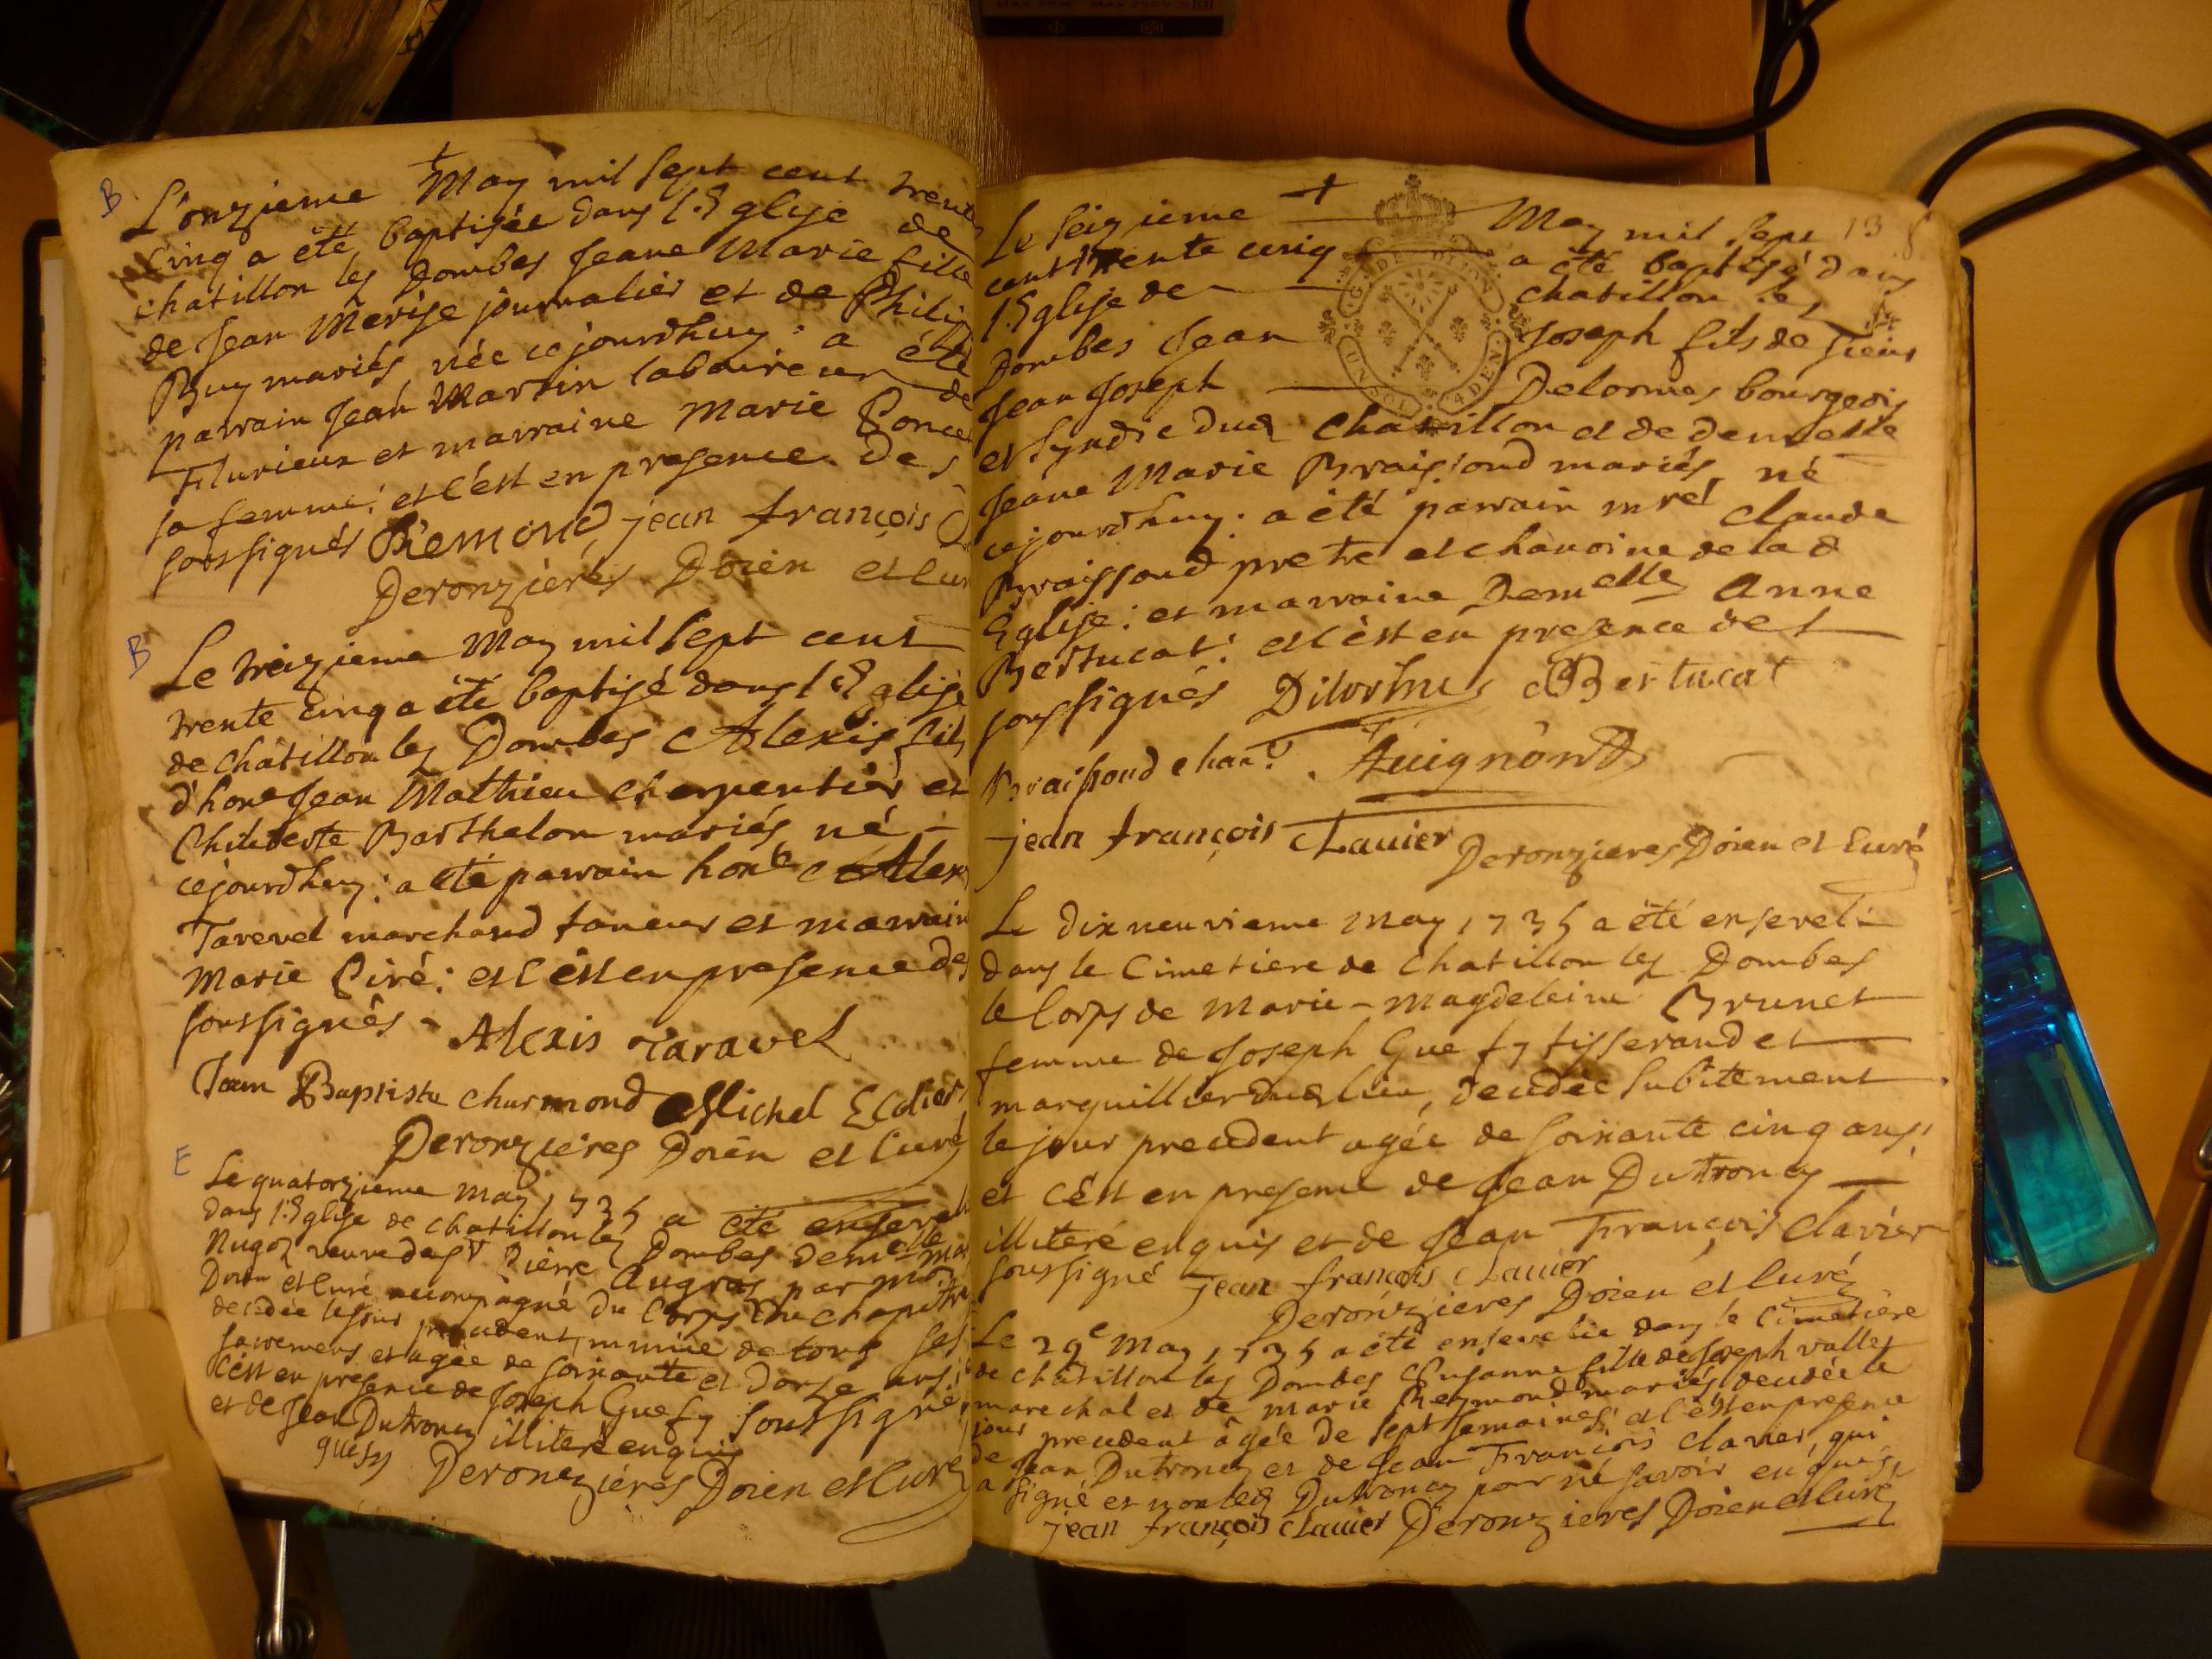 B
L'onzieme May mil sept cent trente
Cinq a été baptisée dans l'Eglise de
chatillon les Dombes Jeane Marie fille
de Jean Merise journalier et de Phili
Buy mariés, née cejourdhuy: a été
parrain Jean Martin laboureur de
Flurieux et marraine Marie Ponce
sa femme: et c'est en presence des
soussignés Piemond jean françois
Deronzieres Doien et cur
B
Le treizieme May mil sept cent
trente cinq a été baptisé dans l'Eglise
de châtillon les Dombes Alexis fils
d'hone Jean Mathieu charpentier et
Philiberte Barthelon mariés, né
cejourdhuy: a été parrain honble Alex
Tarevel marchand taneur et marrain
Marie Piré: et c'est en presence des
soussignés - Alexis Taravel
Jean Baptiste charmond Michel Ecolier
Deronzieres Doien et Curé
E
Le quatorzieme may 1735 a été enseveli
dans l'Eglise de chatillon les Dombes Demelle mar
Nugoz veuve de sr Pierre Augras par moy
Doien et Curé accompagné du Corps du chapitre
decedée le jour precedent, munie de tous ses
sacremens et agée de soixante et douze ans:
c'est en presence de Joseph Guefy soussigné,
et de Jean Dutroncy illiteré enquis
guesy Deronzieres Doien et Curé
13
Le seizieme May mil sept
cent trente cinq a été baptisé dans
l'Eglise de chatillon les
Dombes Jean Joseph fils de Sieur
Jean Joseph Delormes bourgeois
G. DE DIJON
UN SOL 4 DEN
et syndic dud chatillon et de demelle
Jeane Marie Braissoud mariés, né
cejourdhuy: a été parrain mre Claude
Braissoud pretre et chanoine de lad
Eglise: et marraine Demelle Anne
Bertucat: et c'est en presence des
soussignés Dilorme Bertucat
Braissoud chan. Auignond
jean françois Clauier Deronzieres Doien et Curé
Le dix neuvieme may 1735 a été enseveli
dans le Cimetiere de chatillon les Dombes
le Corps de marie-magdeleine Brunet
femme de Joseph Guefy tisserand et
marguillier dud lieu, decedée subitement
le jour precedent agée de soixante cinq ans,
et c'est en presence de Jean Dutroncy
illiteré enquis et de Jean François Clavier
soussigné jean françois Clauier
Deronzieres Doien et Curé
Le 29e May 1735 a été ensevelie dans le Cimetiere
de chatillon les Dombes Susanne fille de Joseph vallet
marechal et de marie Reymond mariés, decedée le
jour precedent âgée de sept semaines: et c'est en presence
de Jean Dutroncy et de Jean François Clavier, qui
a signé et non led Dutroncy pour ne savoir enquis,
jean françois Clauier Deronzieres Doien et Curé